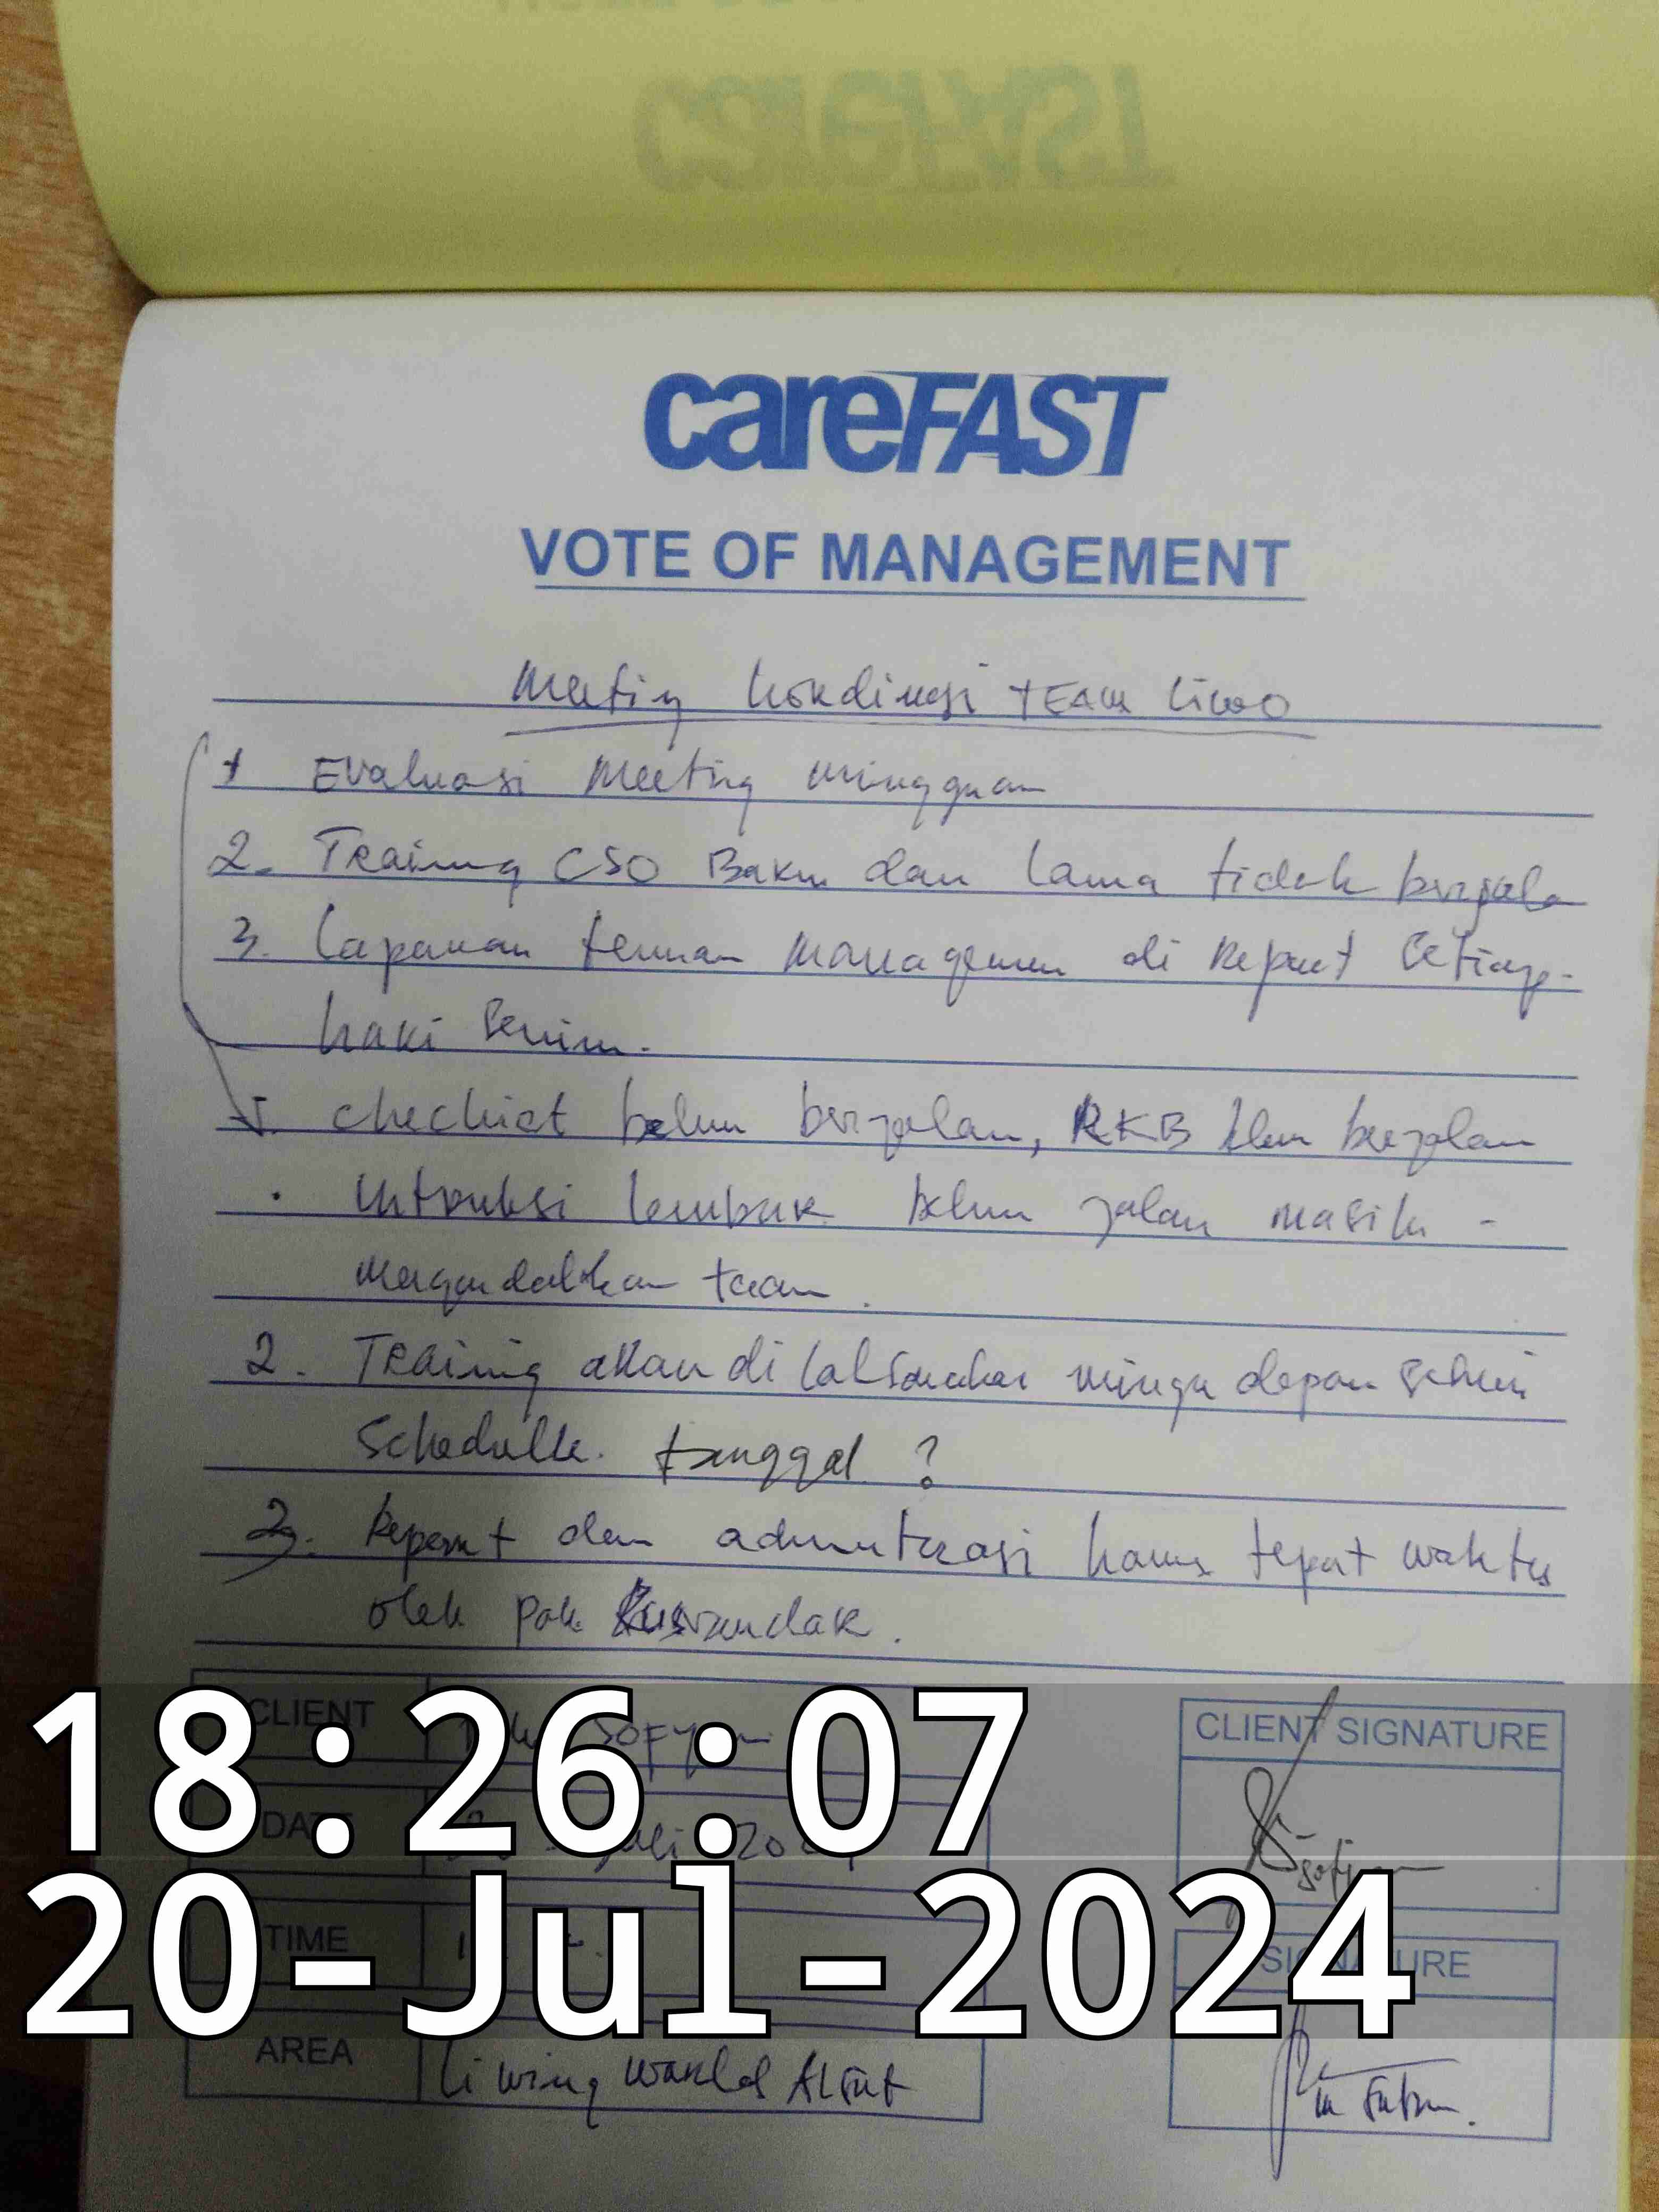 careFAST
VOTE OF MANAGEMENT
Meeting kordinasi TEAM Liwo
1 Evaluasi Meeting mingguan
2. Training CSO Baru dan lama tidak berjala
3. Laparan teman managemen di Report Setiap-
hari Senin.
checklist belum berjalan, RKB blum berjalan
• intruksi lembur belum jalan masih -
mengandalkan team.
2. Training akan di laksanakan minggu depan
Schedulle. tanggal ?
3. Report dan admintrasi harus tepat waktu
oleh pak
CLIENT Sofyan
DATE Juli 20
TIME
AREA Living World Alsut
CLIENT SIGNATURE
Sofyan
SIGNATURE
18:26:07
20-Jul-2024